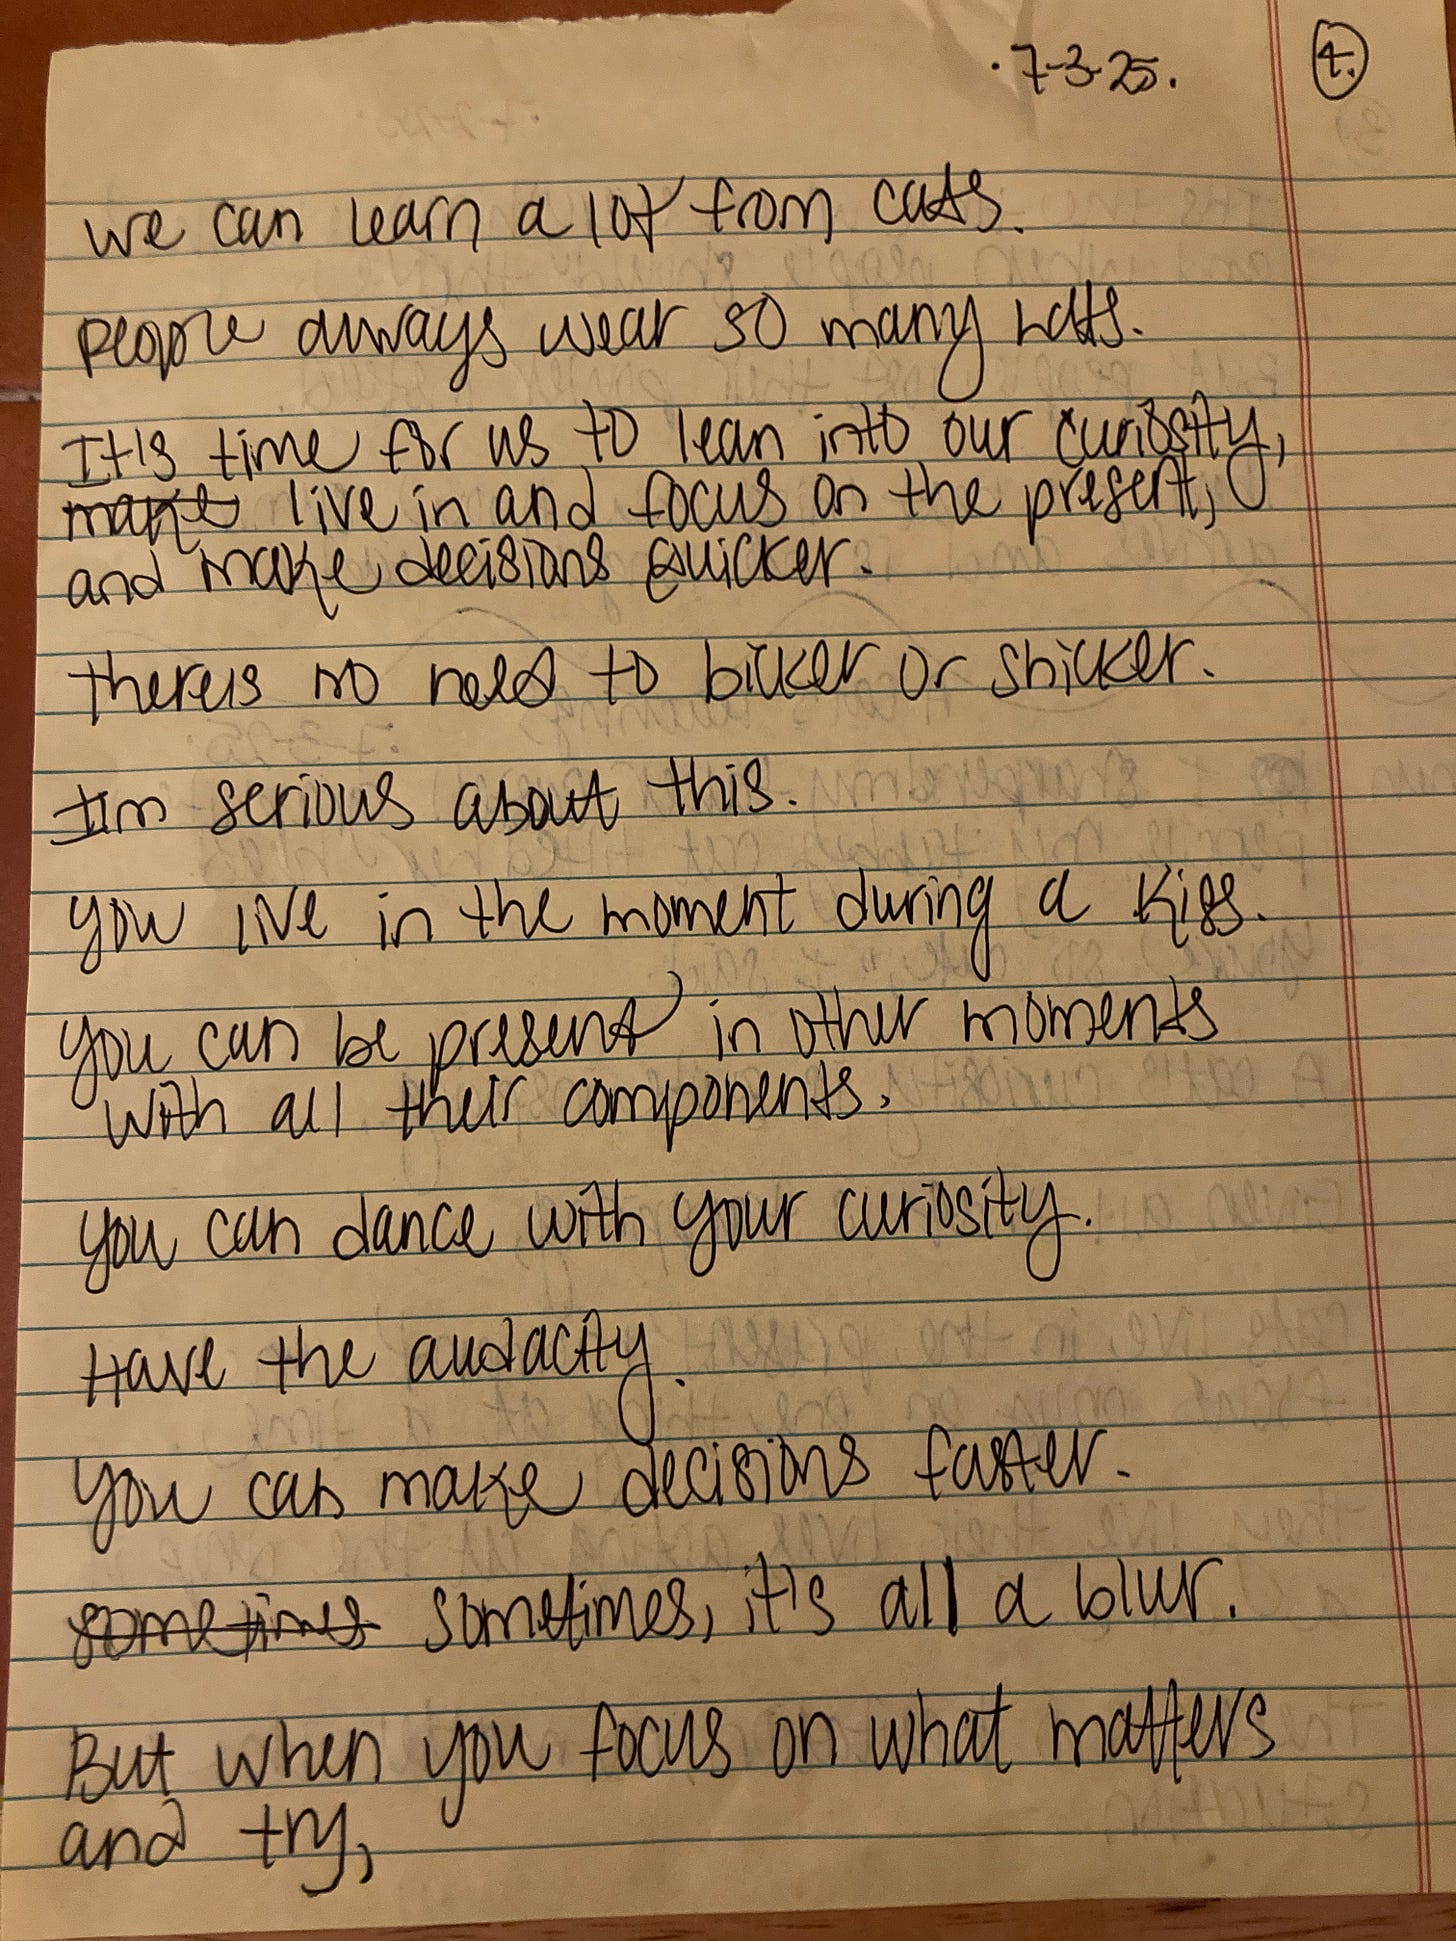 ·7-3-25.
4.
we can learn a lot from cats.
people always wear so many hats.
It's time for us to lean into our curiosity,
make live in and focus on the present,
and make decisions quicker.
there's no need to bicker or snicker.
I'm serious about this.
you live in the moment during a kiss.
you can be present in other moments
with all their components.
you can dance with your curiosity.
Have the audacity.
you can make decisions faster.
sometimes sometimes, it's all a blur.
But when you focus on what matters
and try,